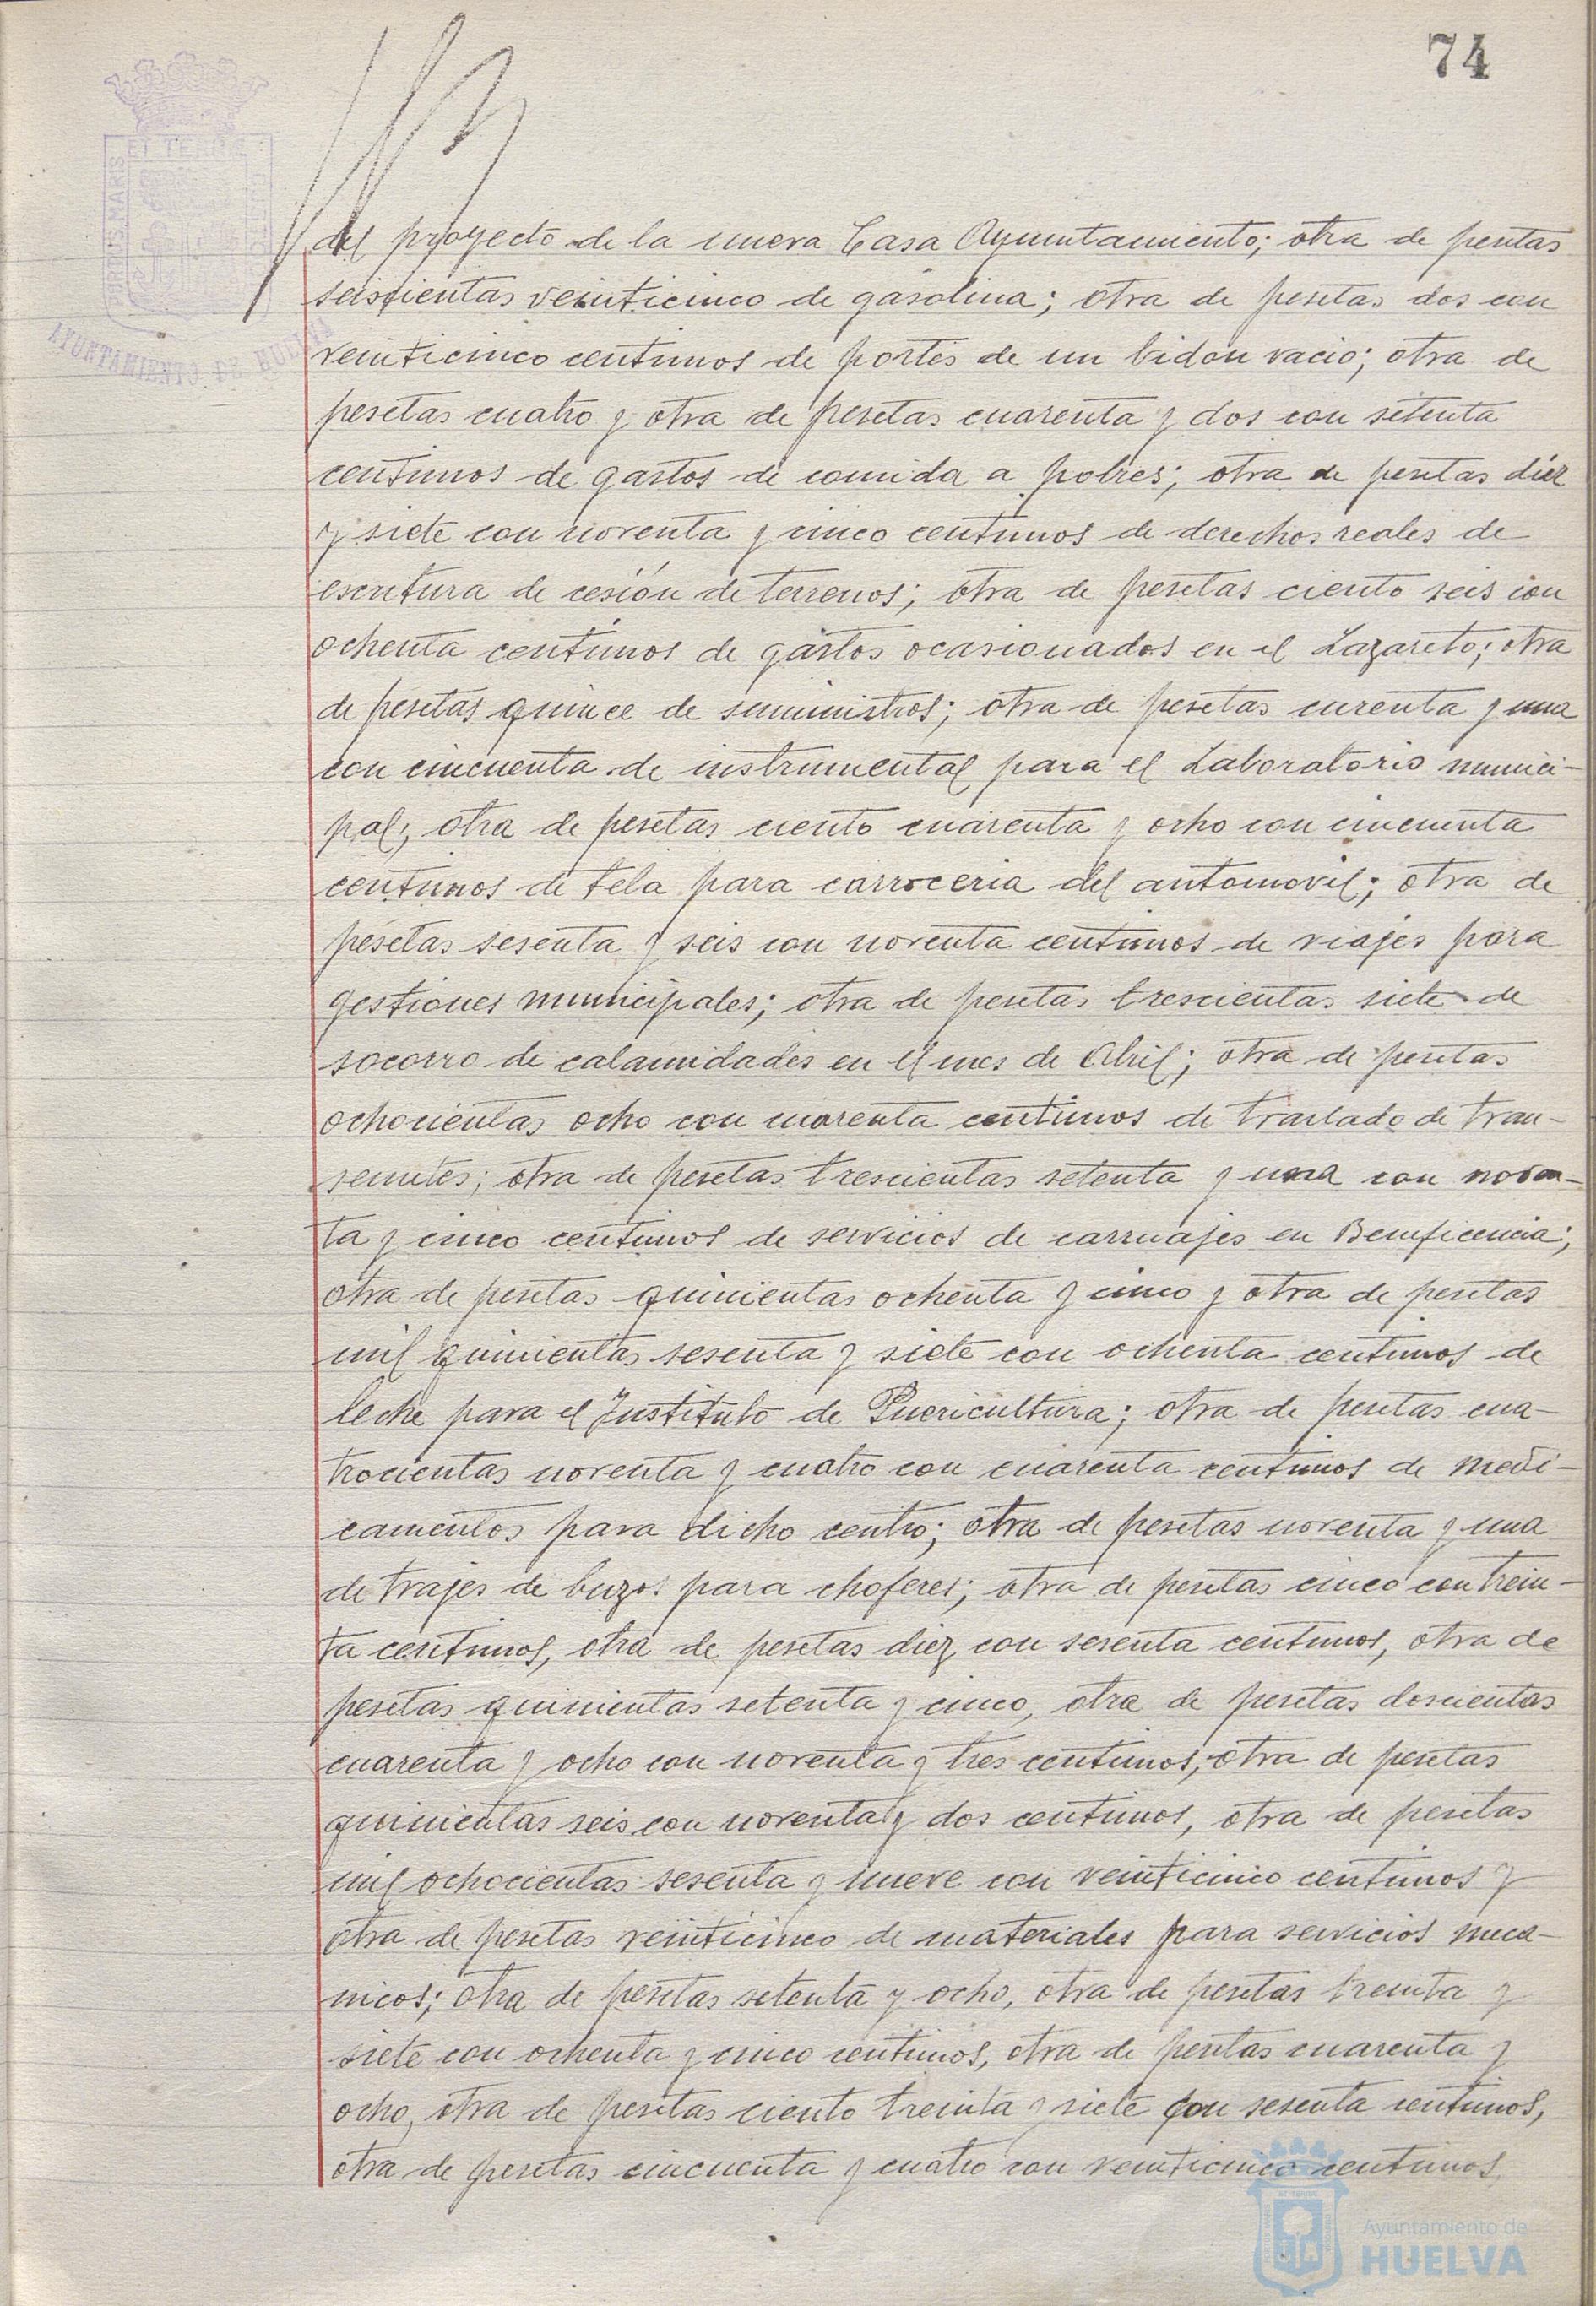 74
ET TERRE
PORTUS MARIS
AYUNTAMIENTO DE HUELVA
del proyecto de la nueva Casa Ayuntamiento; otra de pesetas
seiscientas veinticinco de gasolina; otra de pesetas dos con
veinticinco centimos de portes de un bidon vacio; otra de
pesetas cuatro y otra de pesetas cuarenta y dos con setenta
centimos de gastos de comida a pobres; otra de pesetas diez
y siete con noventa y cinco centimos de derechos reales de
escritura de cesión de terrenos; otra de pesetas ciento seis con
ochenta centimos de gastos ocasionados en el Lazareto; otra
de pesetas quince de suministros; otra de pesetas curenta y una
con cincuenta de instrumental para el Laboratorio munici-
pal; otra de pesetas ciento cuarenta y ocho con cincuenta
centimos de tela para carroceria del automovil; otra de
pesetas sesenta y seis con noventa centimos de viajes para
gestiones municipales; otra de pesetas trescientas siete de
socorro de calamidades en el mes de Abril; otra de pesetas
ochocientas ocho con cuarenta centimos de traslado de tran-
seuntes; otra de pesetas trescientas setenta y una con noven-
ta y cinco centimos de servicios de carruajes en Beneficencia;
otra de pesetas quinientas ochenta y cinco y otra de pesetas
mil quinientas sesenta y siete con ochenta centimos de
leche para el Instituto de Puericultura; otra de pesetas cua-
trocientas noventa y cuatro con cuarenta centimos de medi-
camentos para dicho centro; otra de pesetas noventa y una
de trajes de buzos para choferes; otra de pesetas cinco con trein-
ta centimos, otra de pesetas diez con sesenta centimos, otra de
pesetas quinientas setenta y cinco, otra de pesetas doscientas
cuarenta y ocho con noventa y tres centimos, otra de pesetas
quinientas seis con noventa y dos centimos, otra de pesetas
mil ochocientas sesenta y nueve con veinticinco centimos y
otra de pesetas veinticinco de materiales para servicios meca-
nicos; otra de pesetas setenta y ocho, otra de pesetas treinta y
siete con ochenta y cinco centimos, otra de pesetas cuarenta y
ocho, otra de pesetas ciento treinta y siete con sesenta centimos,
otra de pesetas cincuenta y cuatro con veinticinco centimos,
Ayuntamiento de
HUELVA